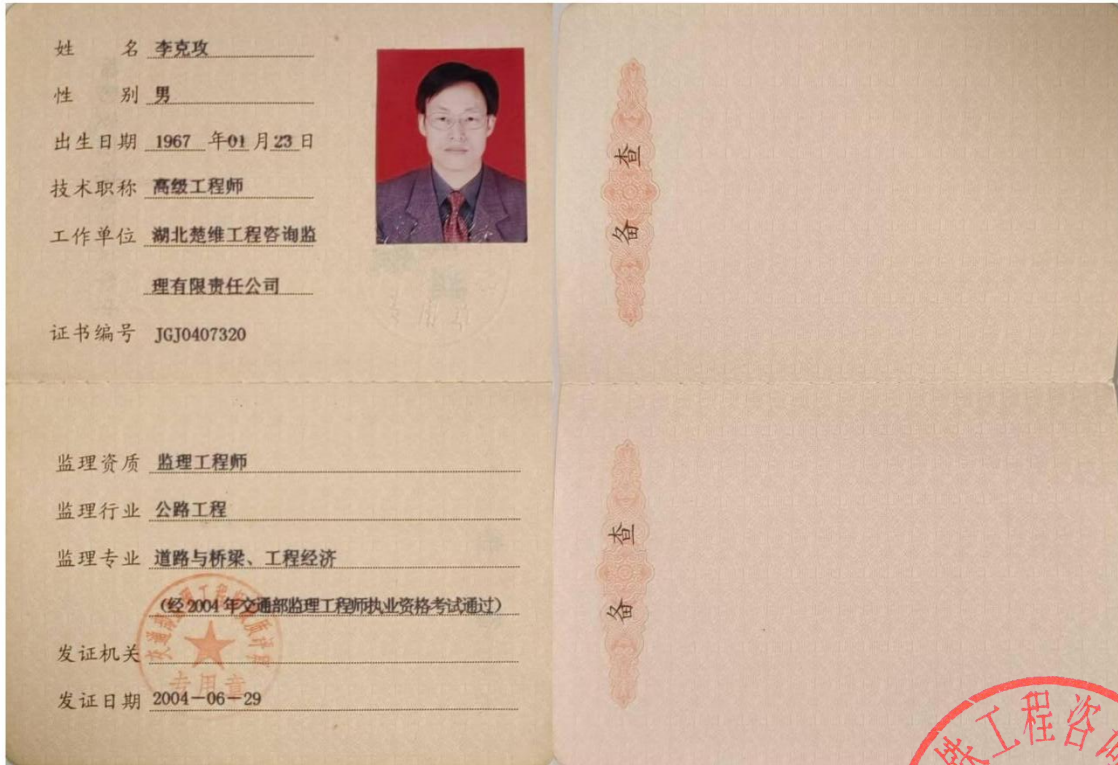 姓 名 李克攻
性 别 男
出生日期 1967 年01月23日
技术职称 高级工程师
工作单位 湖北楚维工程咨询监
理有限责任公司
证书编号 JGJ0407320
监理资质 监理工程师
监理行业 公路工程
监理专业 道路与桥梁、工程经济
(经2004年交通部监理工程师执业资格考试通过)
发证机关
专用章
发证日期 2004-06-29
备查
备查
工程咨